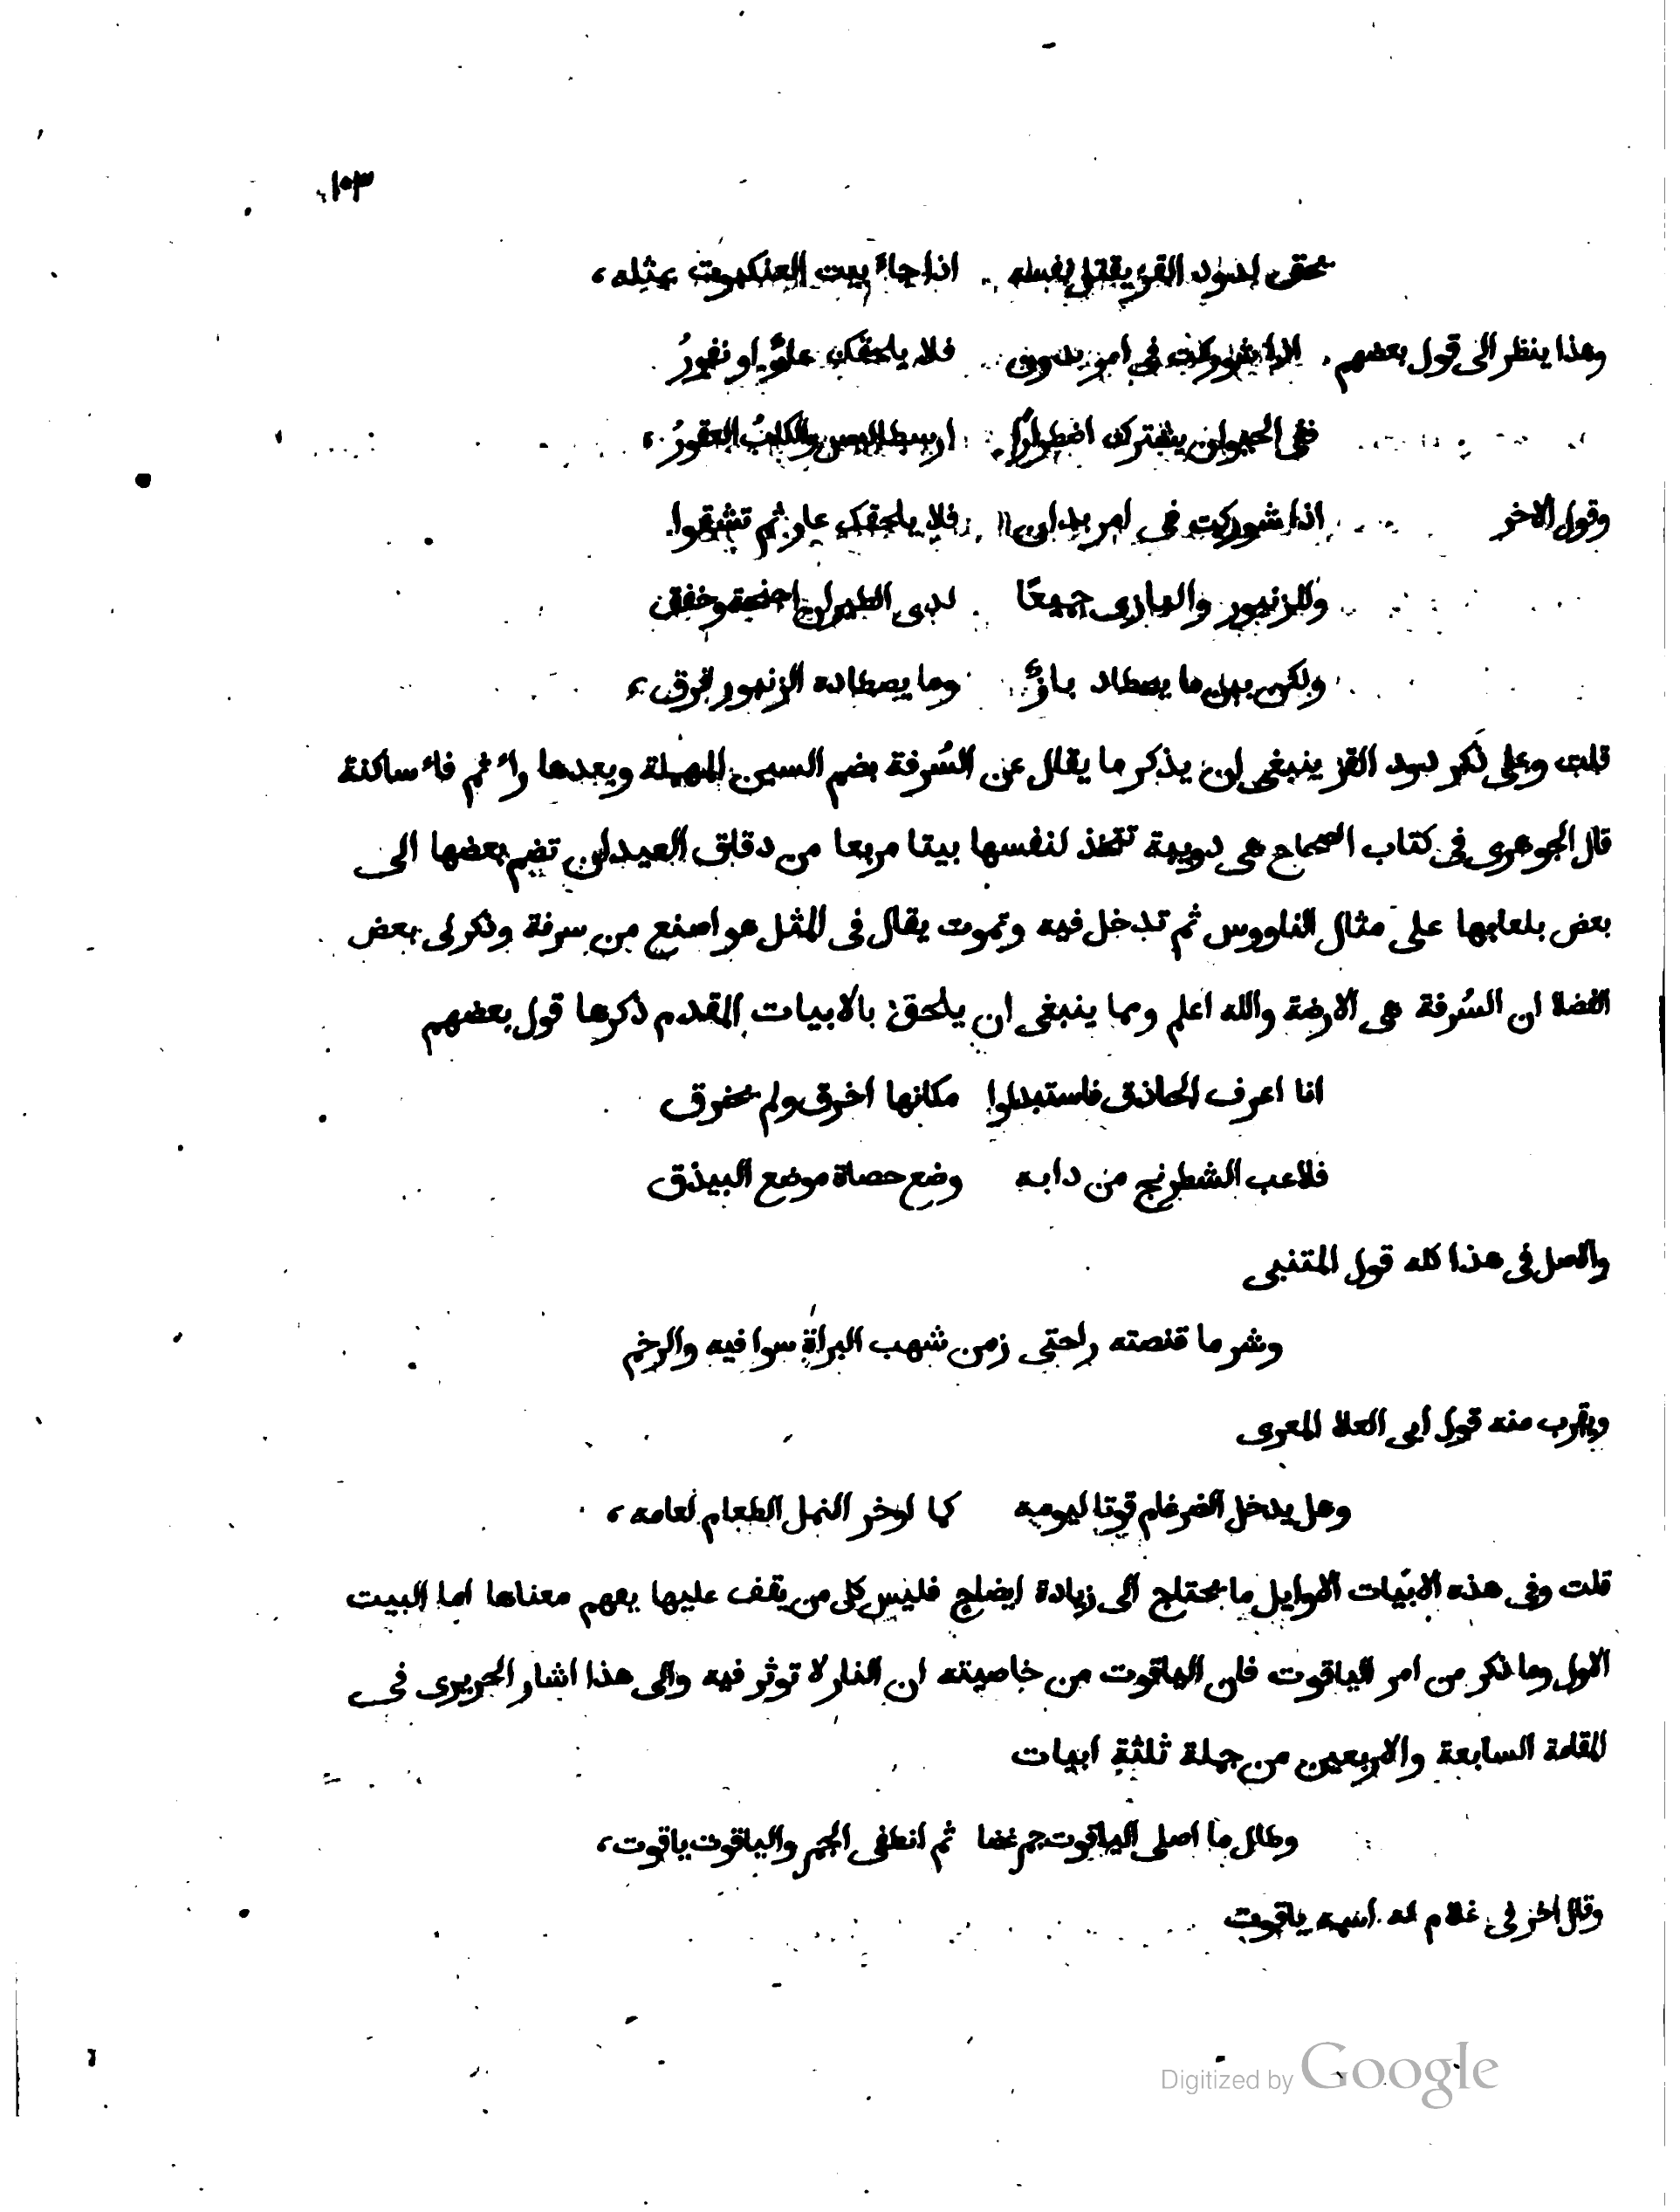 ١٠٣
بحقى لدود القز يقتل نفسه اذا جاء بيت العنكبوت بمثله،
وهذا ينظر الى قول بعضهم اذا شوركت فى امر بدون فلا يلحقك عار او نفورُ
ففى الحيوان يشترك اضطرارًا ارسطاليس والكلبُ العقورُ،
وقول الاخر اذا شوركت فى امر بدان فلا يلحقك عار ثم تشقوا
وللزنبور والبازى جميعًا لدى الطيران اجنحة وخفق
ولكن بين ما يصطاد باز وما يصطاده الزنبور فرق،
قلت وعلى ذكر دود القز ينبغى ان يذكر ما يقال عن السُرفة بضم السين المهملة وبعدها راء ثم فاء ساكنة
قال الجوهرى فى كتاب الصحاح هى دويبة تتخذ لنفسها بيتا مربعا من دقاق العيدان تضم بعضها الى
بعض بلعابها على مثال الناووس ثم تدخل فيه وتموت يقال فى المثل هو اصنع من سرفة وذكر لى بعض
الفضلا ان السُرفة هى الارضة والله اعلم ومما ينبغى ان يلحق بالابيات المقدم ذكرها قول بعضهم
انا اعرف الحاذق فاستبدلوا مكانها اخرق ولم يخرق
فلاعب الشطرنج من دابه وضع حصاة موضع البيذق
والاصل فى هذا كله قول المتنبى
وشر ما قنصته راحتى زمن شهب البزاة سوا فيه والرخم
ويقرب منه قول ابى العلا المعرى
وهل يدخل الضرغام قوتا ليومه كما ادخر النمل الطعام لعامه،
قلت وفى هذه الابيات الاوايل ما يحتاج الى زيادة ايضاح فليس كل من يقف عليها يفهم معناها اما البيت
الاول وما ذكر من امر الياقوت فان الياقوت من خاصيته ان النار لا توثر فيه والى هذا اشار الحريرى فى
المقامة السابعة والاربعين من جملة ثلثة ابيات
وطال ما اصلى الياقوت جمر غضا ثم انطفى الجمر والياقوت ياقوت،
وقال اخر فى غلام له اسمه ياقوت
Digitized by Google